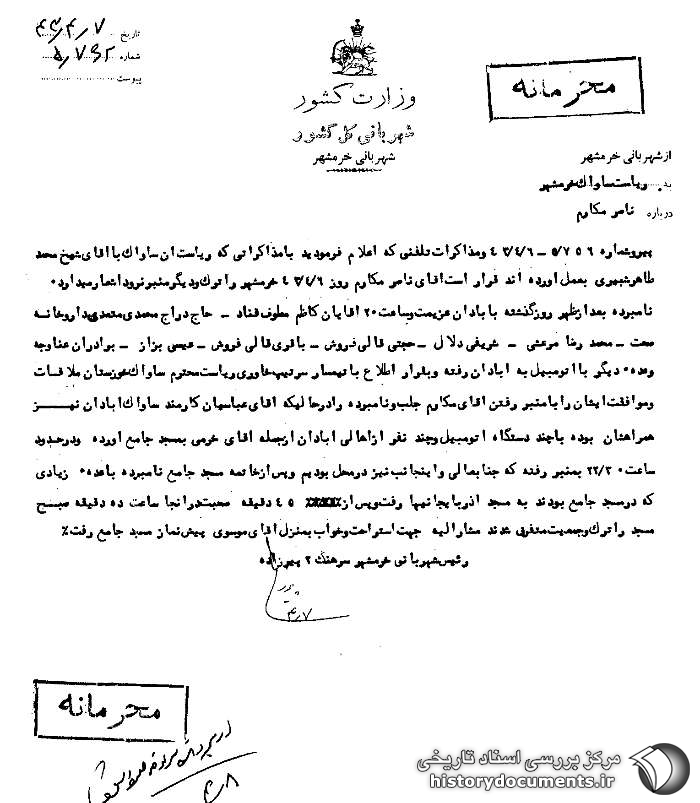 تاریخ ۴۳٫۴٫۷
شماره ۵٫۷۶۲
پیوست
وزارت کشور
شهربانی کل کشور
شهربانی خرمشهر
محرمانه
از شهربانی خرمشهر
به ریاست ساواک خرمشهر
درباره ناصر مکارم
پیروشماره ۵/۷۵۶ – ۴۳/۴/۶ ومذاکرات تلفنی که اعلام فرمودید بامذاکراتی که ریاست ان ساواک با اقای شیخ محمد
طاهرشبیری بعمل اورده اند قرار است اقای ناصر مکارم روز ۴۳/۴/۶ خرمشهر را ترک ودیگر منبر نرود اشعار میدارد۰
نامبرده بعد از ظهر روز گذشته با بادان عزیمت وساعت ۲۰ اقایان کاظم عطوف قناد – حاج دراج محمدی متصدی داروخانه
صحت – محمد رضا مرعشی – شریفی دلال – حجتی قالی فروش – باقری قالی فروش – عیسی بزاز – برادران عناوجه
وعده دیگر با اتومبیل به ابادان رفته وبقرار اطلاع با تیمسار سرتیپ خاوری ریاست محترم ساواک خوزستان ملاقات
وموافقت ایشان را با منبر رفتن اقای مکارم جلب ونامبرده را در حالیکه اقای عباسیان کارمند ساواک ابادان نیــز
همراهشان بوده با چند دستگاه اتومبیل وچند نفر از اهالی ابادان ازجمله اقای خرمی بمسجد جامع اورده ودرحدود
ساعت ۲۲/۳۰ بمنبر رفته که جنابعالی واینجانب نیز در محل بودیم وپس از خاتمه مسجد جامع نامبرده با عده زیادی
که در مسجد جامع بودند به مسجد اذربایجانیها رفت وپس از ۴۵ دقیقه صحبت در انجا ساعت ده دقیقه صبح
مسجد را ترک وجمعیت متفرق شدند مشارالیه جهت استراحت وخواب بمنزل اقای موسوی پیش نماز مسجد جامع رفت٪
رئیس شهربانی خرمشهر سرهنگ ۲ پیرزاده
۴٫۷
محرمانه
۴٫۸
مرکز بررسی اسناد تاریخی
historydocuments.ir